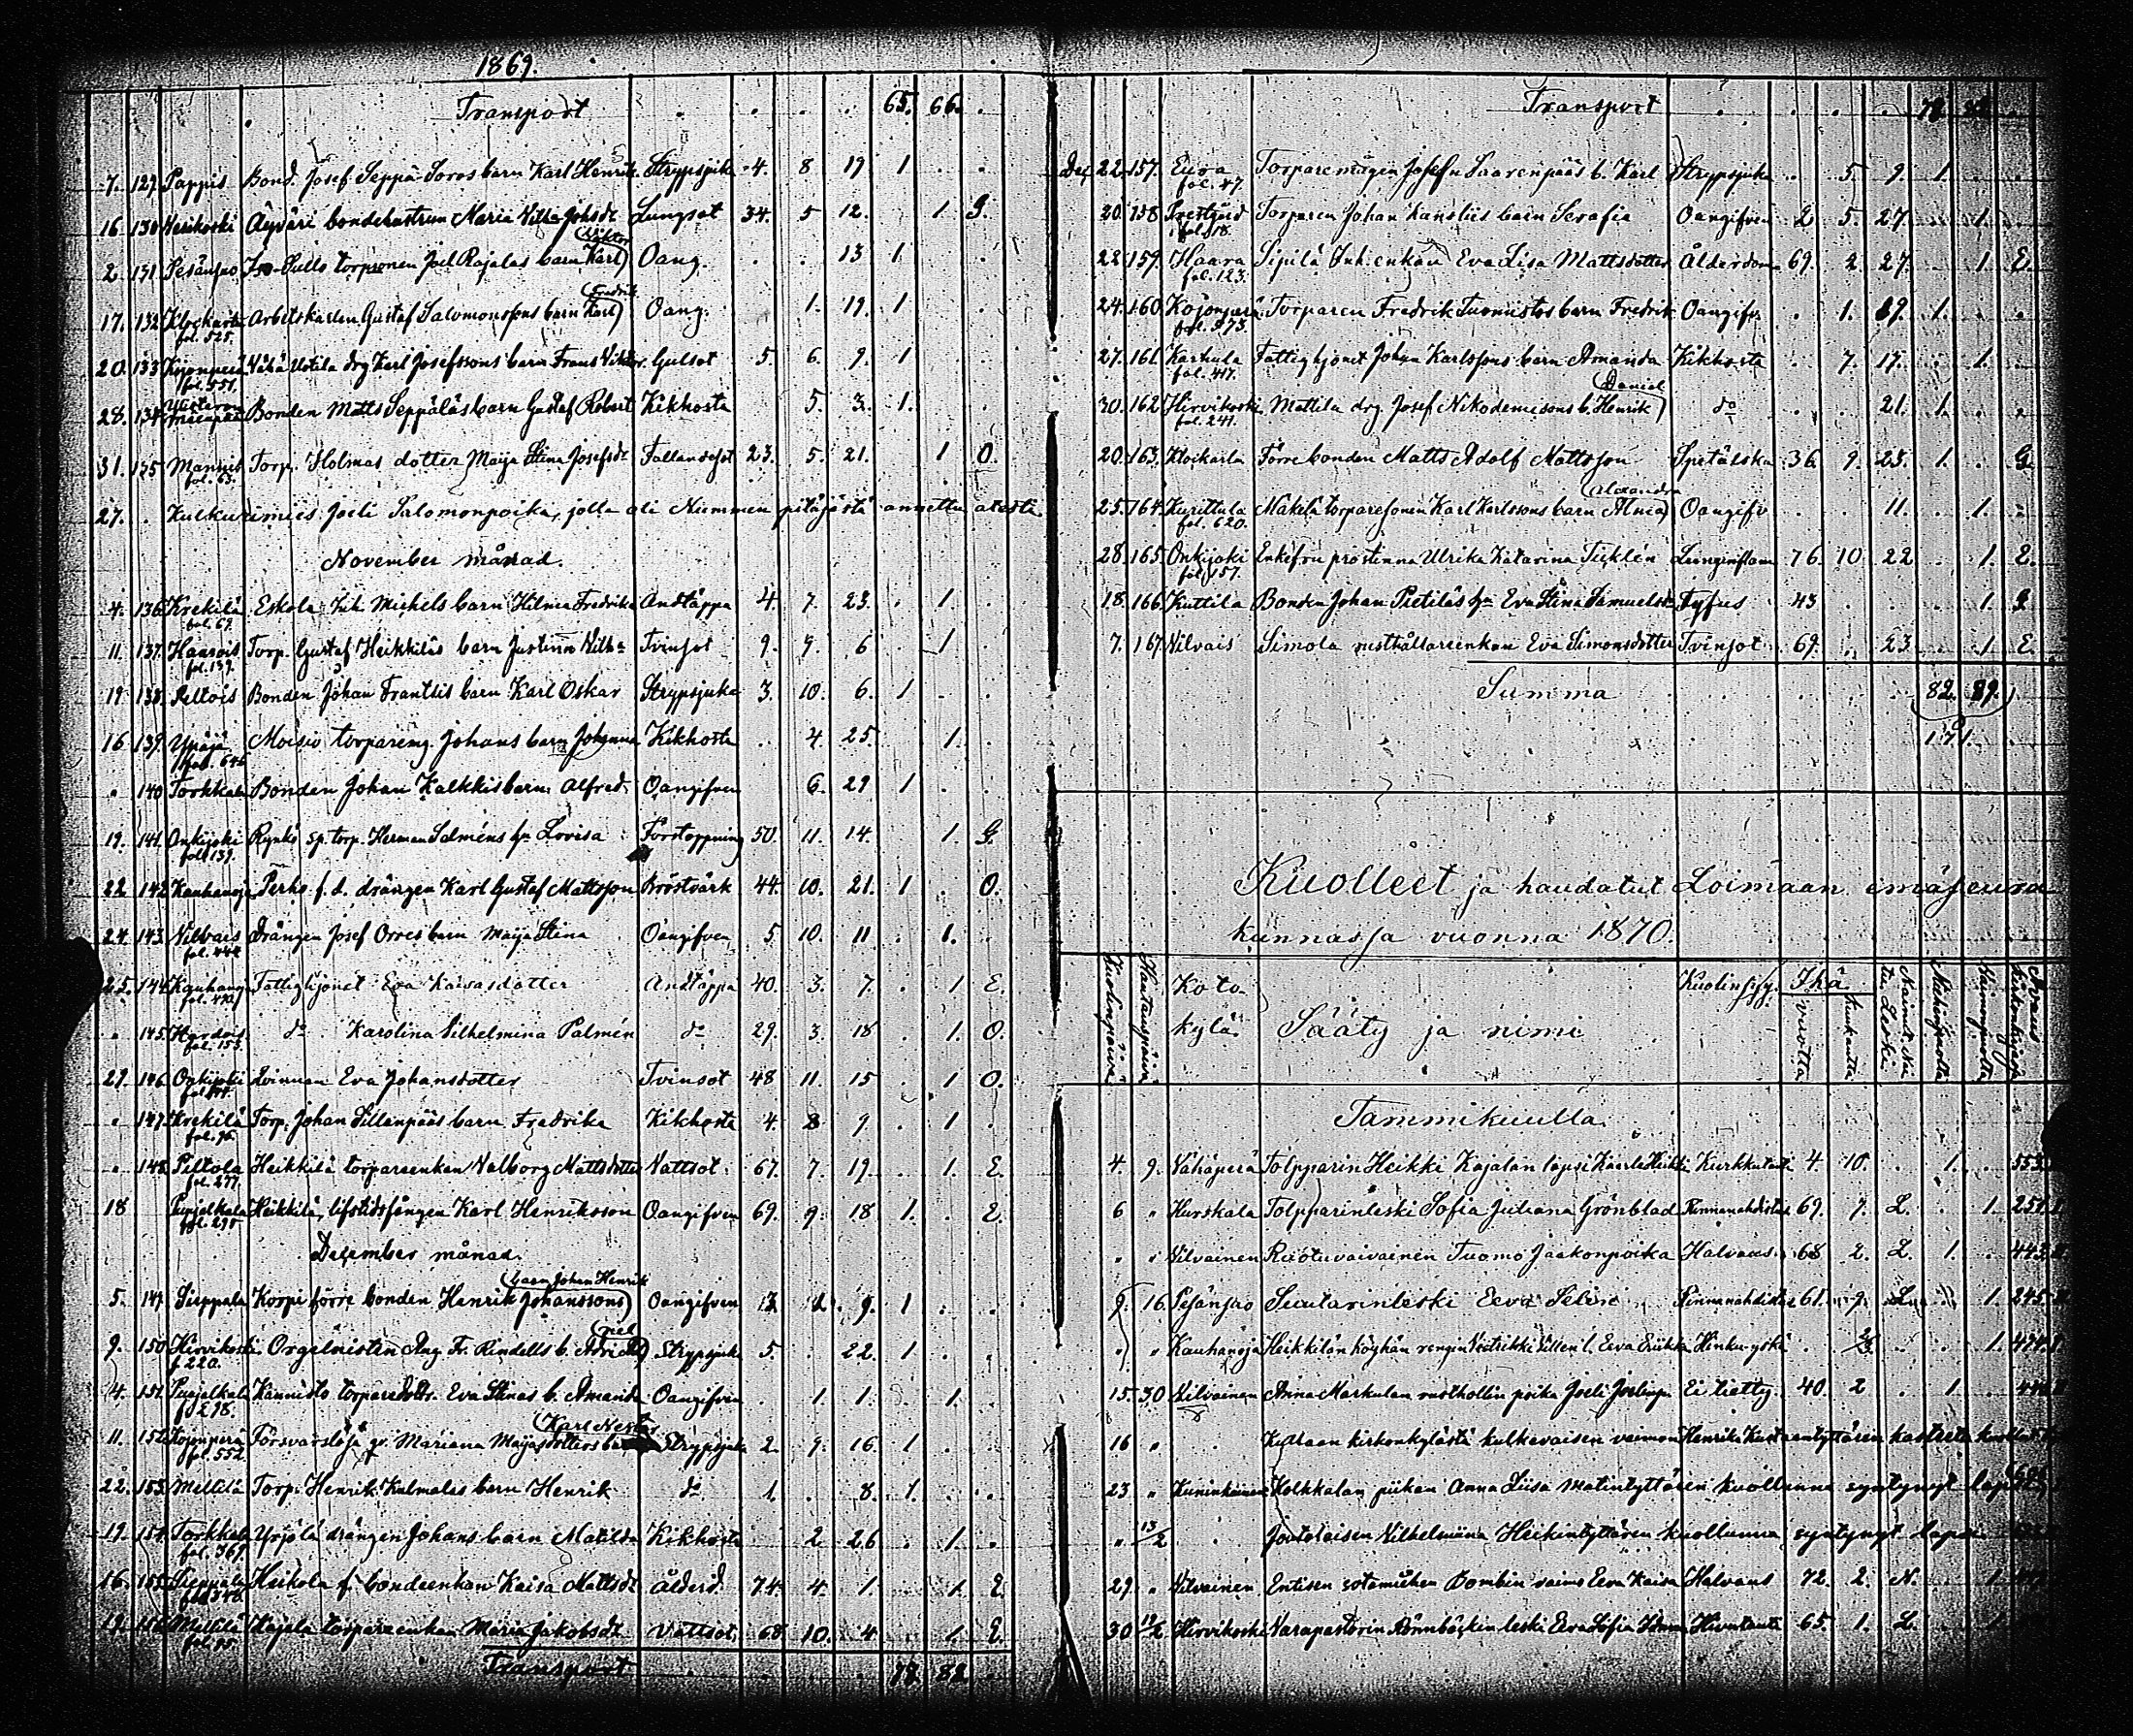 1869.
Transport . . . . 65. 66. .
7. 129. Pappis Bond. Josef Seppä-Soros barn Karl Henrik Strypsjuka 4. 8 19 1 . .
16 130 Hirvikoski Äyväri bondehustrun Maria Vilh:a Johsdr Lungsot 34. 5 12. . 1 G.
Viktor
2. 131. Pesänsuo Iso-Sulls torpsonen Joel Rajalas barn Karl Oang. . . 13 1 .
Fredrik
17. 132 Klockarla Arbetskarlen Gustaf Salomonssons barn Karl Oang. 1. 19. 1
fol. 525.
20. 133 Kojonperä Vähä Uotila drg Karl Josefssons barn Frans Viktor Gulsot 5. 6. 9. 1
fol. 551.
28. 134 Bonden Matts Seppäläs barn Gustaf Robert Kikhosta 5. 3. 1.
31. 135 Mannis Torp. Holmas dotter Maija Stina Josefsdr Fallandesot 23. 5. 21. 1 O.
fol. 63.
27. . Kulkurimies Joeli Salomonpoika, jolla oli Nummen pitäjästä annettu atesti.
November månad.
4. 136 Krekilä Eskola Inh. Michels barn Hilma Fredrika Andtäppa 4. 7. 23. . 1 .
fol. 69.
11. 137. Haarois Torp. Gustaf Heikkiläs barn Justina Vilh:a Tvinsot 9. 9. 6 . 1 .
fol. 139.
19 138. Peltois Bonden Johan Frantsis barn Karl Oskar Strypsjuka 3. 10. 6. 1 . .
16 139. Ypäjä Moisio torpareng. Johans barn Johanna Kikhosta . 4. 25. 1.
fol. 646
" 140 Torkkala Bonden Johan Kalkkis barn Alfred Oangifven 6. 29 1
19. 141. Onkijoki Rynkö sp. torp. Herman Salméns h:u Lovisa Förstoppning 50. 11. 14. 1. G.
fol. 139.
22 142 Kauhanoja Perho f. d. drängen Karl Gustaf Mattsson Bröstvärk 44. 10. 21. 1 . O.
24. 143. Vilvais Drängen Josef Orres barn Maija Stina Oangifven 5 10. 11 . 1.
25. 144 Kauhanoja Fattighjonet Eva Kaisasdotter Andtäppa 40. 3. 7. . 1 E.
" 145. d:o Karolina Vilhelmina Palmén d:o 29. 3. 18 . 1. O.
fol. 153.
29. 146 Onkijoki Qvinnan Eva Johansdotter Tvinsot 48 11. 15 . 1 O.
" 147. Krekilä Torp. Johan Sillanpääs barn Fredrika Kikhosta 4. 8 9. . 1
fol. 96.
" 148. Piltola Heikkilä torpareenkan Valborg Mattsdotter Vattsot 67. 7 19. . 1. E.
fol. 277.
18 Puujalkala Heikkilä, lifstidsfången Karl Henriksson Oangifven 69. 9. 18 1. . E.
fol. 295
December månad.
barn Johan Henrik
5. 149. Sieppala Korpi förre bonden Henrik Johanssons Oangifven 13. 9. 1 . .
9. 150 Hirvikoski Orgelnisten Aug. Fr. Rindells b. Strypsjuka 5. . 22. 1 . .
f. 220.
4. 151. Puujalkala Kännisto torpare dottr. Eva Stinas b. Amanda Oangifven . 1. 1. . 1.
f. 298.
Karl Nestor
11. 152 Kojonperä Försvarslösa qv. Mariana Maijasdotters Strypsjuka 2. 9. 16. 1
fol. 552
22. 153. Mellilä Torp. Henrik Kulmalas barn Henrik d:o 1. . 8. 1. . .
19. 154. Torkkala Yrjölä drängen Johans barn Matilda Kikhosta . 2 26 . 1. .
fol. 369.
16. 155. Sieppala Heikola f. bondeenkan Kaisa Mattsdr Ålderd. 74. 4. 1. . 1. E.
19. 156. Mellilä Kajala torpareenkan Maria Jakobsdr Vattsot. 68 10. 4 . 1. E.
fol. 95
Transport . . . . 77. 82.
Transport . . . .
Dec. 22. 157. Eura Torparemågen Josef Saarenpääs b. Karl Strypsjuka . 5. 9. 1. . .
fol. 47.
20. 158 Prestgård Torparen Johan Kansliis barn Serafia Oangifven 2 5. 27. . 1. .
fol. 18.
22. 159. Haara Sipilä Inh. enkan Eva Lisa Mattsdotter Ålderdom 69. 2. 27. . 1. E.
fol. 123.
24. 160. Kojonperä Torparen Fredrik Tuomistos barn Fredrik Oangifv. . 1. 19. 1. . .
fol. 573.
27. 161. Karhula Fattighjonet Johan Karlssons barn Amanda Kikhosta . 7. 17. . 1. .
fol. 417.
Daniel
30. 162 Hirvikoski Mattila drg. Josef Nikodemisons b. Henrik d:o . . 21. 1. . .
fol. 241.
20. 163. Klockarla Förre bonden Matts Adolf Mattsson Spetälska 36. 9. 25. 1. . G.
Alexandra
25. 164. Kurittula Mäkelä torparesonen Karl Karlssons barn Alma Oangifv . . 11. . 1. .
fol. 620.
28. 165. Onkijoki Enkefru prostinna Ulrika Katarina Ticklén Lunginflam 76. 10 22 . 1. E.
fol. 157.
18. 166. Kuttila Bonden Johan Pietiläs h:u Eva Stina Samuelsdr Tyfus 43 . . . 1. G
7. 167. Vilvais Simola rusthållareenkan Eva Simonsdotter Tvinsot 69. . 23 . 1. E.
Summa . . . . 82. 89.
171.
Kuolleet ja haudatut Loimaan emäseura
kunnassa vuonna 1870.
Kuolinpäivä Hautauspäivä Koto kylä. Sääty ja nimi Kuolinsyy. Ikä vuotta kuukautta Naind. Nai tu. Leski. Miehenpuolta Vaimonpuolta Sivus kirkonkirjassa
Tammikuulla.
4. 9. Vähäperä Tolpparin Heikki Kajalan lapsi Kaarle Heikki Kurkkutauti 4. 10. . 1. . 553.
6 " Hurskala Tolpparinleski Sofia Juliana Grönblad Rinnanahdistus 69. 7. L. . 1. 251.
" " Vilvainen Ruotuvaivainen Tuomo Jaakonpoika Halvaus. 68 2. L. 1. . 443.
9. 16. Pesänsuo Suutarinleski Eeva Selin Rinnanahdistus 61. 9. L. . 1. 245.
" " Kauhanoja Heikkilän köyhän rengin Fredrikki Villen l. Eeva Eriikka Hinku-yskä . . . 1. 474.
15. 30. Vilvainen Anna Markulan rusthollin poika Joeli Joelinp. Ei tietty. 40. 2 . 1 .
16 " . Kullaan kirkonkylästä kulkevaisen vaimon Henrika Kustaantyttären kasteeta kuollut
23 " Kuninkainen Holkkalan piikan Anna Liisa Matintyttären kuollunna syntynyt lapsi
" 13/2 . Joutolaisen Vilhelmiina Heikintyttären kuollunna syntynyt lapsi
29. " Vilvainen Entisen sotamiehen Bombin vaimo Eeva Kaisa Halvaus 72. 2. N. . 1.
30 13/2 Hirvikoski Varapastorin Rönnbäckin leski Eeva Sofia 65. 1. L. . 1